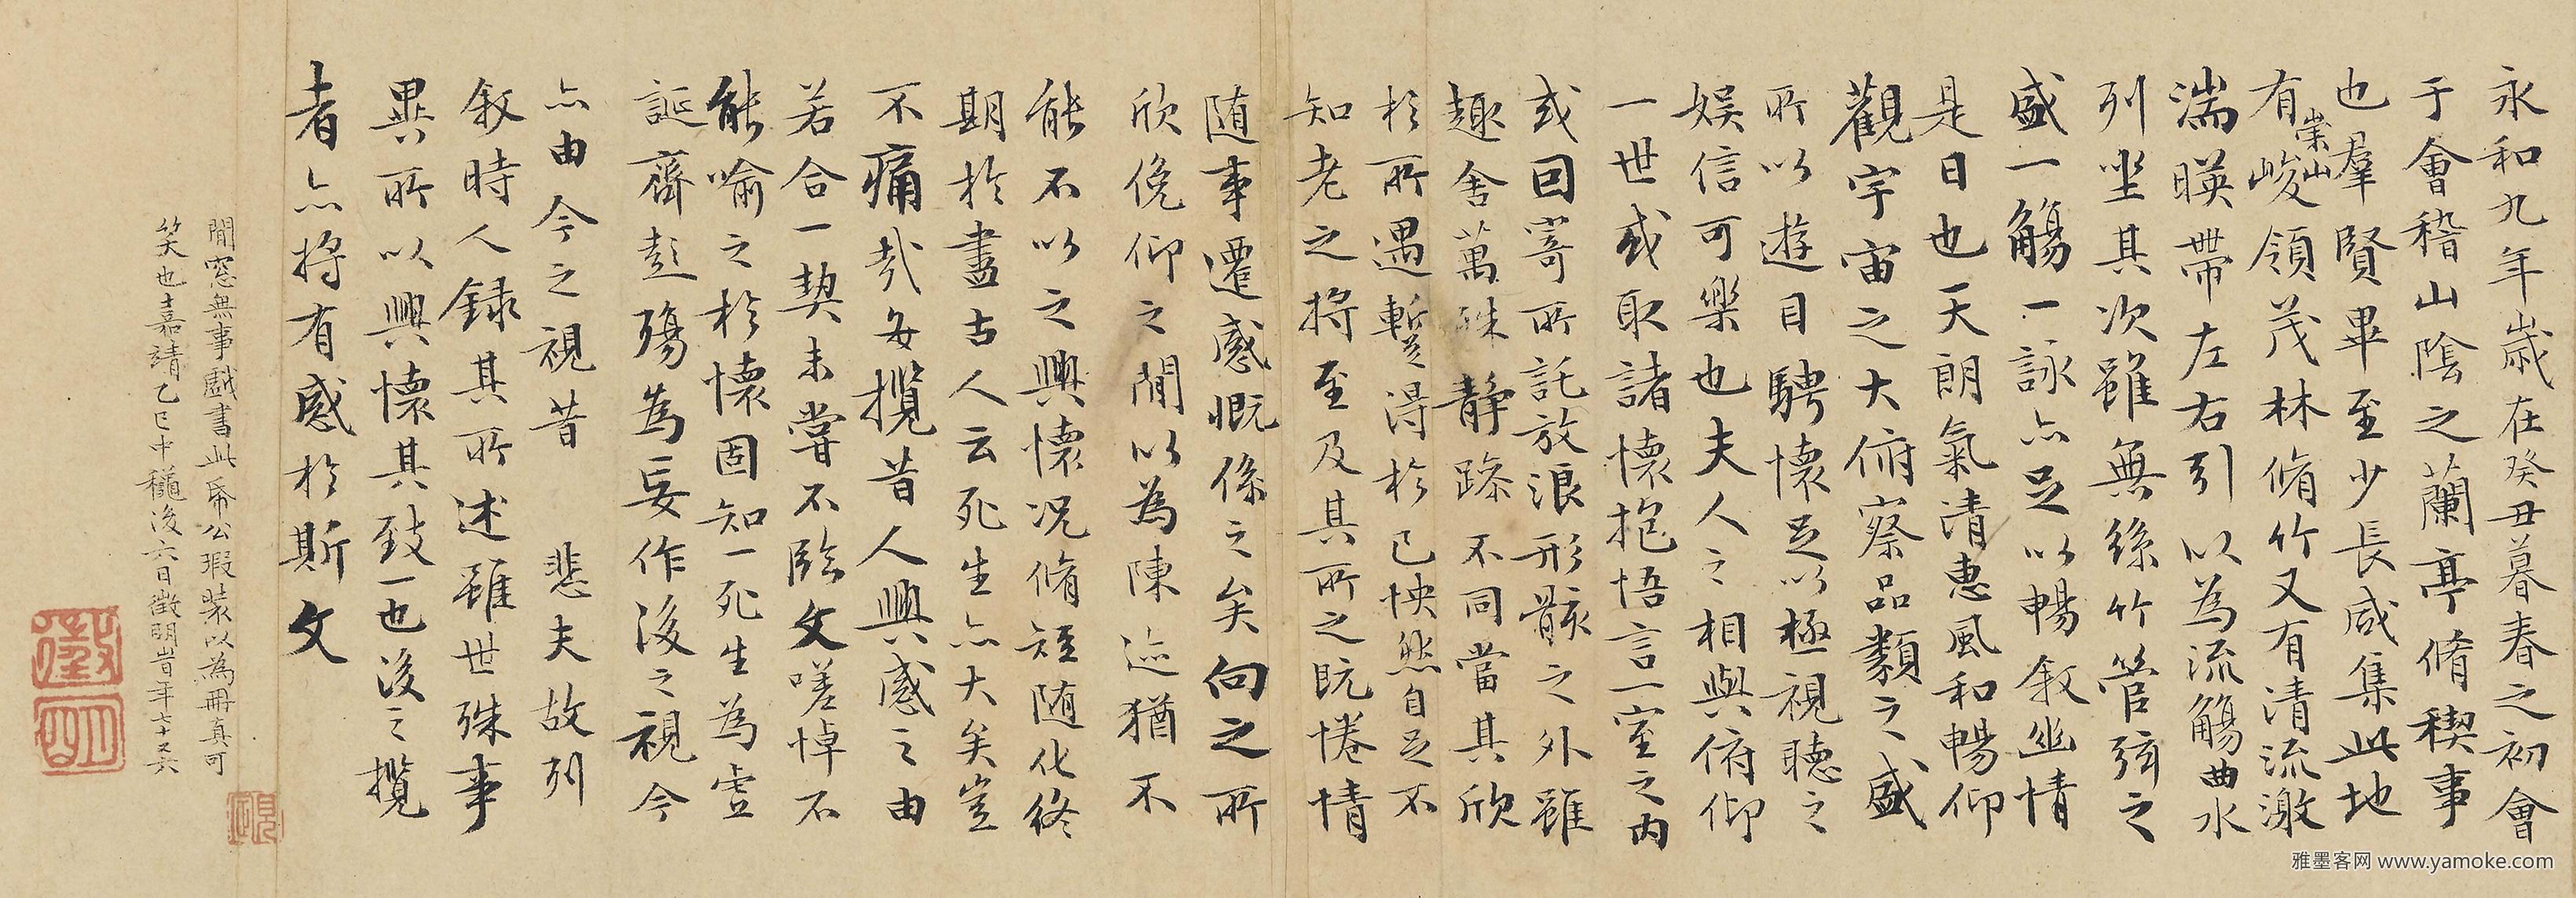 永和九年歲在癸丑暮春之初會
于會稽山陰之蘭亭脩稧事
也羣賢畢至少長咸集此地
有崇山峻領茂林脩竹又有清流激
湍暎帶左右引以為流觴曲水
列坐其次雖無絲竹管弦之
盛一觴一詠亦足以暢敘幽情
是日也天朗氣清惠風和暢仰
觀宇宙之大俯察品類之盛
所以遊目騁懷足以極視聽之
娛信可樂也夫人之相與俯仰
一世或取諸懷抱悟言一室之內
或因寄所託放浪形骸之外雖
趣舍萬殊靜躁不同當其欣
於所遇暫得於己怏然自足不
知老之將至及其所之既惓情
隨事遷感慨係之矣向之所
欣俛仰之閒以為陳迹猶不
能不以之興懷況脩短隨化終
期於盡古人云死生亦大矣豈
不痛哉每攬昔人興感之由
若合一契未嘗不臨文嗟悼不
能喻之於懷固知一死生為虛
誕齊彭殤為妄作後之視今
亦由今之視昔 悲夫故列
敘時人錄其所述雖世殊事
異所以興懷其致一也後之攬
者亦將有感於斯文
閒窓無事戲書此希公瑕裝以為冊真可
笑也嘉靖乙巳中穐後六日徵明時年七十又六
徵
明
雅墨客网 www.yamoke.com